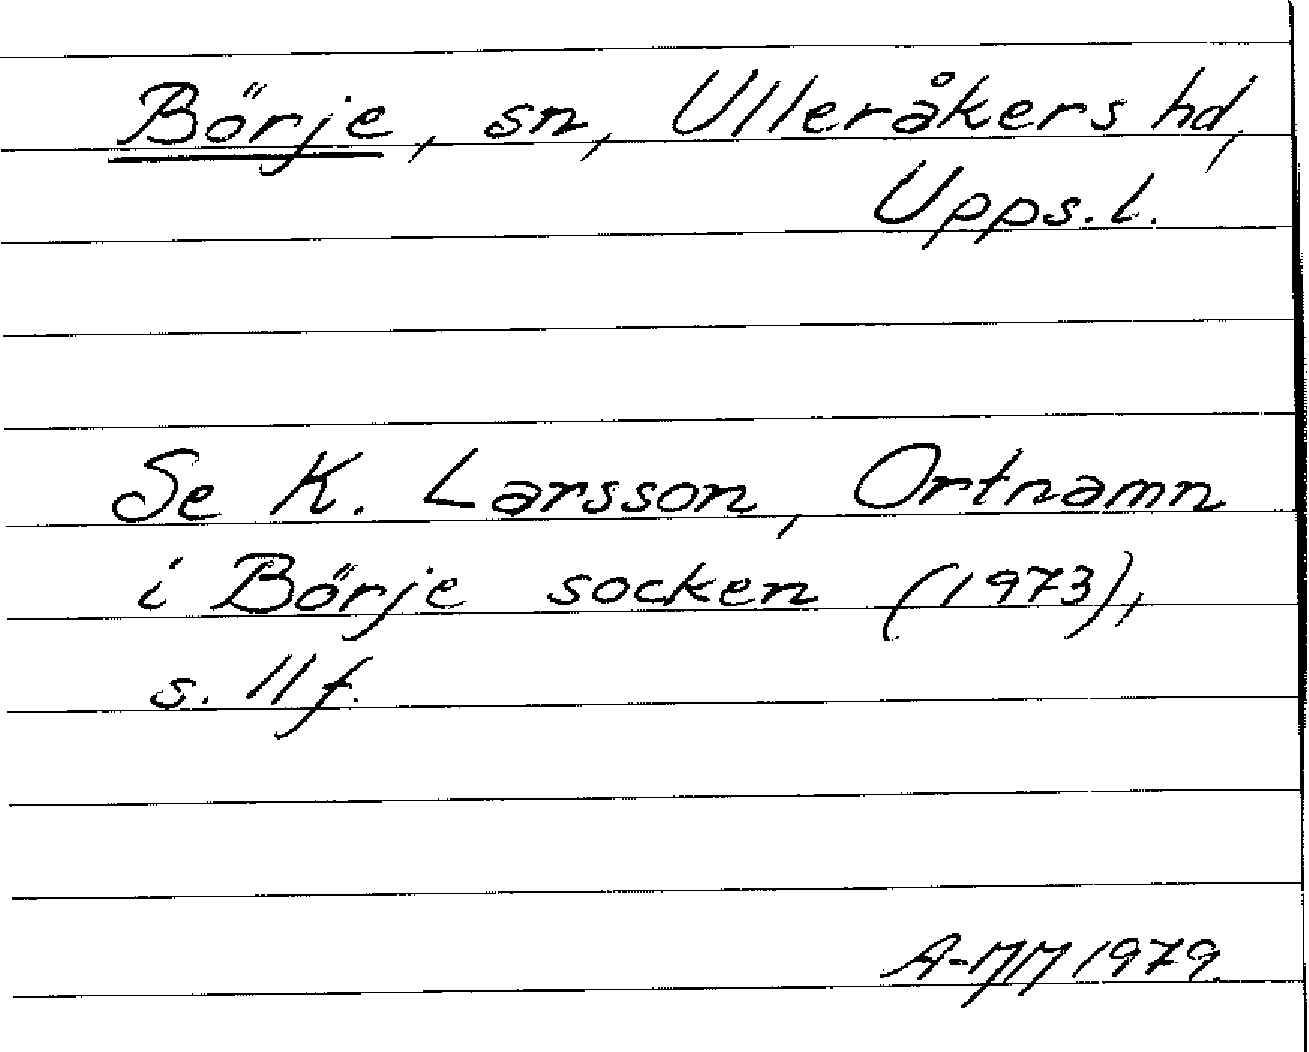 Börje, sn, Ulleråkers hd,
Upps. l.
Se K. Larsson, Ortnamn
i Börje socken (1973),
s. 11 f.
A-MM 1979.